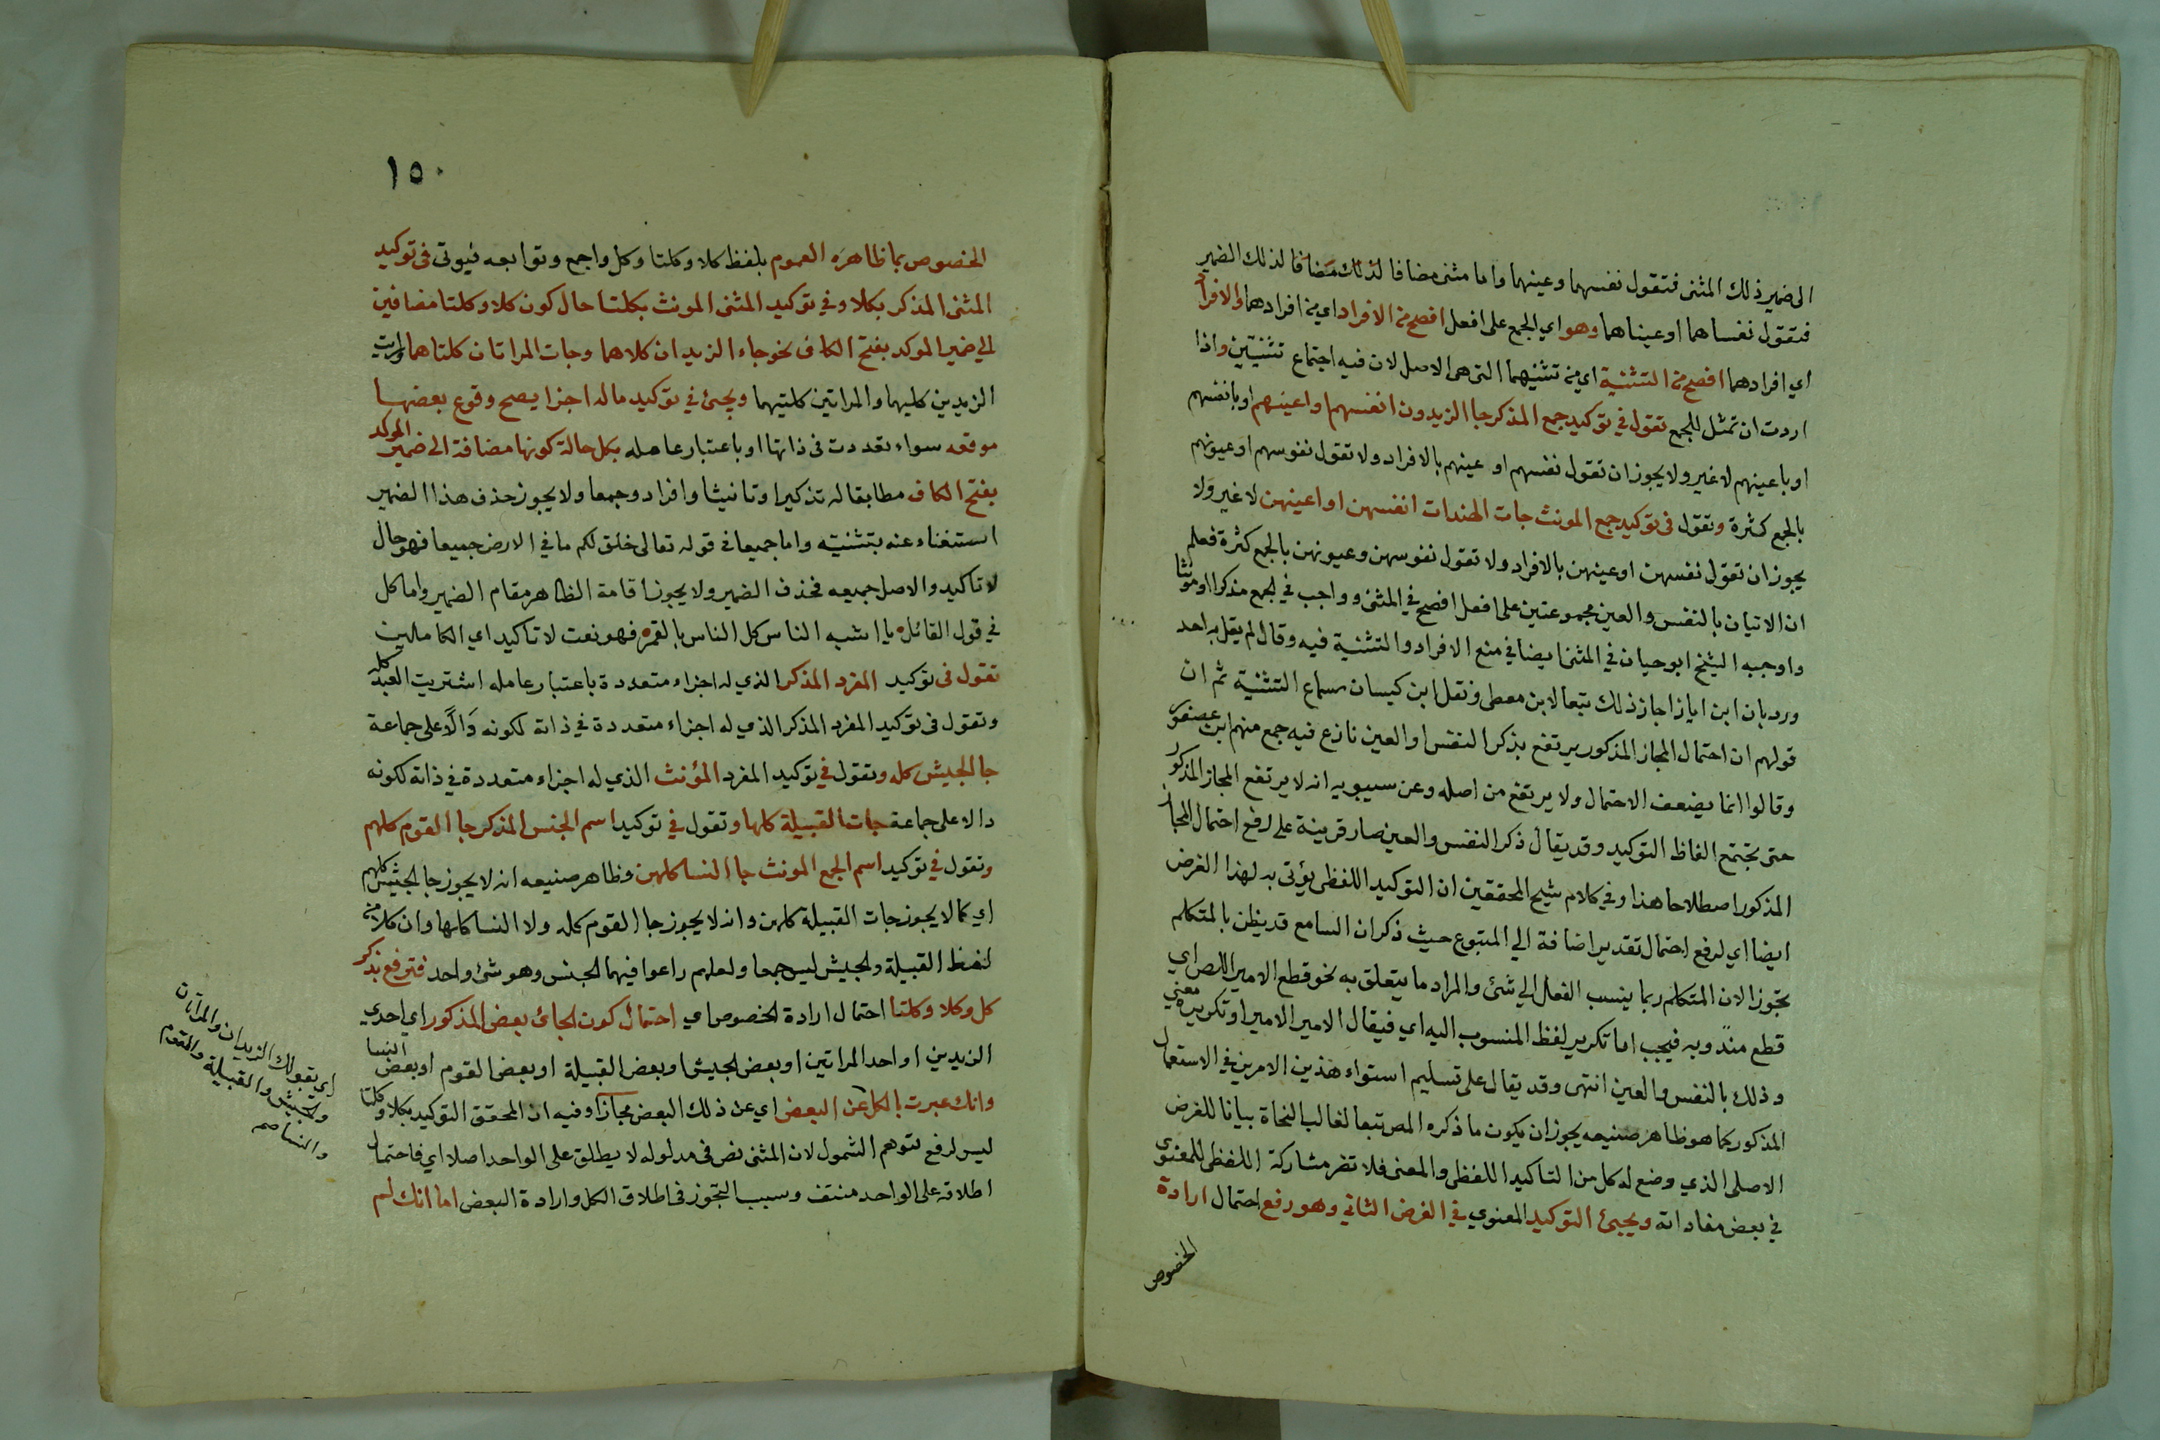 الى ضمير ذلك المثنى فتقول نفسهما وعينهما واما مثنى مضافا لذلك مضافا لذلك الضمير
فتقول نفساهما او عيناهما وهو اي الجمع على افعل افصح من الافراد اي من افرادهما والافراد
اي افرادهما افصح من التثنية اي من تثنيهما التي هي الاصل لان فيه اجتماع تثنيتين واذا
اردت ان تمثل للجمع تقول في توكيد جمع المذكر جا الزيدون انفسهم او اعينهم او بانفسهم
او باعينهم لا غير ولا يجوز ان تقول نفسهم او عينهم بالافراد ولا تقول نفوسهم او عيونهم
بالجمع كثرة وتقول في توكيد جمع المونث جات الهندات انفسهن او اعينهن لا غير ولا
يجوز ان تقول نفسهن او عينهن بالافراد ولا تقول نفوسهن وعيونهن بالجمع كثرة فعلم
ان الاتيان بالنفس والعين مجموعتين على افعل افصح في المثنى وواجب في الجمع مذكرا او مونثا
واوجبه الشيخ ابو حيان في المثنى ايضا في منع الافراد والتثنية فيه وقال لم يقل به احد
ورد بان ابن اياز اجاز ذلك تبعا لابن معطي ونقل ابن كيسان سماع التثنية ثم ان
قولهم ان احتمال المجاز المذكور يرتفع بذكر النفس او العين نازع فيه جمع منهم ابن عصفور
وقالوا انما يضعف الاحتمال ولا يرتفع من اصله وعن سيبويه انه لا يرتفع المجاز المذكور
حتى تجتمع الفاظ التوكيد وقد يقال ذكر النفس والعين صار قرينة على رفع احتمال المجاز
المذكور اصطلاحا هذا وفي كلام شيخ المحققين ان التوكيد اللفظي يؤتى به لهذا الغرض
ايضا اي لرفع احتمال تقدير اضافة الى المتبوع حيث ذكر ان السامع قد يظن بالمتكلم
تجوزا لان المتكلم ربما ينسب الفعل الى شئ والمراد ما يتعلق به نحو قطع الامير اللص اي
قطع مندوبه فيجب اما تكرير لفظ المنسوب اليه اي فيقال الامير الامير او تكريره معنى
وذلك بالنفس والعين انتهى وقد يقال على تسليم استواء هذين الامرين في الاستعمال
المذكور كما هو ظاهر صنيعه يجوز ان يكون ما ذكره المص تبعا لغالب النحاة بيانا للغرض
الاصلي الذي وضع له كل من التاكيد اللفظي والمعنى فلا تضر مشاركة اللفظي للمعنوي
في بعض مفاداته ويجئ التوكيد المعنوي في الغرض الثاني وهو رفع احتمال ارادة
الخصوص
١٥٠
الخصوص بما ظاهره العموم بلفظ كلا وكلتا وكل واجمع وتوابعه فيوتى في توكيد
المثنى المذكر بكلا وفي توكيد المثنى المونث بكلتا حال كون كلا وكلتا مضافين
الى ضمير الموكد بفتح الكاف نحو جاء الزيدان كلاهما وجات المراتان كلتاهما ورايت
الزيدين كليهما والمراتين كلتيهما ويجئ في توكيد ماله اجزا يصح وقوع بعضها
موقعه سواء تعددت في ذاتها او باعتبار عامله بكل حالة كونها مضافة الى ضمير الموكد
بفتح الكاف مطابقا له تذكيرا وتانيثا وافراد وجمعا ولا يجوز حذف هذا الضمير
استغناء عنه بتثنيته واما جميعا في قوله تعالى خلق لكم ما في الارض جميعا فهو حال
لا تاكيد والاصل جميعه فحذف الضمير ولا يجوز اقامة الظاهر مقام الضمير واما كل
في قول القائل يا اشبه الناس كل الناس بالقمر فهو نعت لا تاكيد اي الكاملين
تقول في توكيد المفرد المذكر الذي له اجزاء متعددة باعتبار عامله اشتريت العبد كله
وتقول في توكيد المفرد المذكر الذي له اجزاء متعددة في ذاته لكونه دالا على جماعة
جا الجيش كله وتقول في توكيد المفرد المؤنث الذي له اجزاء متعددة في ذاته لكونه
دالا على جماعة جات القبيلة كلها وتقول في توكيد اسم الجنس المذكر جا القوم كلهم
وتقول في توكيد اسم الجمع المونث جا النسا كلهن وظاهر صنيعه انه لا يجوز جا الجيش كلهم
اي كما لا يجوز جات القبيلة كلهن وانه لا يجوز جا القوم كله ولا النسا كلها وان كلا من
لفظ القبيلة والجيش ليس جمعا ولعلهم راعوا فيهما الجنس وهو شئ واحد فترفع بذكر
كل وكلا وكلتا احتمال ارادة الخصوص اي احتمال كون الجائ بعض المذكور اي احدي
الزيدين او احد المراتين او بعض الجيش او بعض القبيلة او بعض القوم او بعض النسا
وانك عبرت بالكل عن البعض اي عن ذلك البعض مجازا وفيه ان المحقق التوكيد بكلا وكلتا
ليس لرفع توهم الشمول لان المثنى نص في مدلوله لا يطلق على الواحد اصلا اي فاحتمال
اطلاقه على الواحد منتف وسبب التجوز في اطلاق الكل وارادة البعض اما انك لم
اي بقولك الزيدان والمراتان
والجيش والقبيلة والقوم
والنسا صح